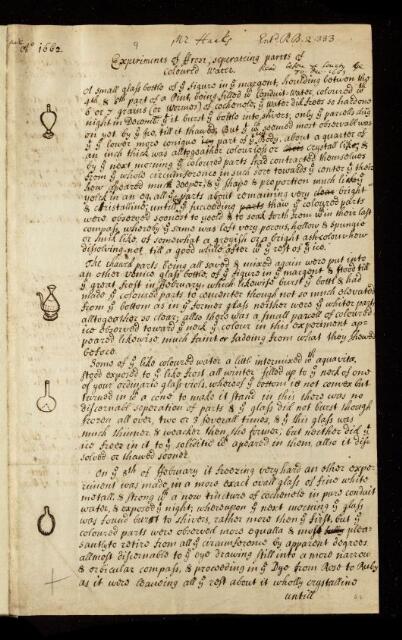 Aº 1662. 9 Mr Haaks Ent. R.B. 2. 333
Experiments of Frost, seperating parts of
coloured water. Read before ye Society
A small glass bottle of ye figure in ye margent, houlding between the
4th & 5th part of a Pint, being filled wth Conduit-water, coloured wth
6 or 7 grains (or wormes) of cochenele, ye water did freese so hard one
night in Decemb: yt it burst ye bottle into shivers; only ye parcels clung
on yet by ye ice, till it thawed, But yt wch seemed most observable was
in ye lower more conique part of ye body, about a quarter of
an inch thick was alltogeather colourless or cristall like; &
by ye next morning ye coloured parts had contracted themselves
from ye whole circumference in such sort towards ye center yt these
now apeared much deeper, & ye shape & proportion much like ye
yolck in an eg, all ye parts about remaining very bright
& christalline; untill by succeeding thaw ye coloured parts
were observed soonest to yeeld & to soak forth from wthin their last
compass, whereby ye same was left very porous, hollow & spungie
or husk like, of somewhat a greyish or a bright ash-colour how
dissolving not till a good while after all ye rest of ye ice.
The thawed parts being all saved & mixed again were put into
an other Venice glass bottle, of ye figure in ye margent & stood till
ye great frost in February: which likewise burst ye bottle & had
made ye coloured parts to concenter though not so much elevated
from ye bottom as in ye former glass neither were ye white parts
alltogeather so clear; allso there was a small parcell of coloured
ice observed toward ye neck ye colour in this experiment ap-
peared likewise much faint or fadeing from what they shewed
before.
Some of ye like coloured water a litle intermixed wth aquavita,
stood exposed to ye like frost all winter filled up to ye neck of one
of your ordinarie glass viols, whereof ye bottom is not convex but
turned in wth a cone to make it stand in this there was no
discernable seperation of parts & ye glass did not burst though
frozen all over, two or 3 severall times, & ye this glass was
much thinner & weaker then the former, but neither did ye
ice freez in it to yt soliditie wch apeared in them, allso it dis-
solved or thawed sooner.
On ye 8th of February it freezing very hard an other expe-
riment was made in a more exact ovall glass of fine white
metall, & strong wth a new tincture of cocheneele in pure conduit
water, & exposed ye night; whereupon ye next morning ye glass
was found burst to shivers, rather more then ye first, but ye
coloured parts were observed more equalla & most plea-
santlye to retire from all ye circumference by apparent degrees
allmost discernable to ye eye drawing still into a more narrow
& orbicular compass, & proceeding in ye Dye from Rose to Ruby
as it were leaveing all ye rest about it wholly crystalline
untill